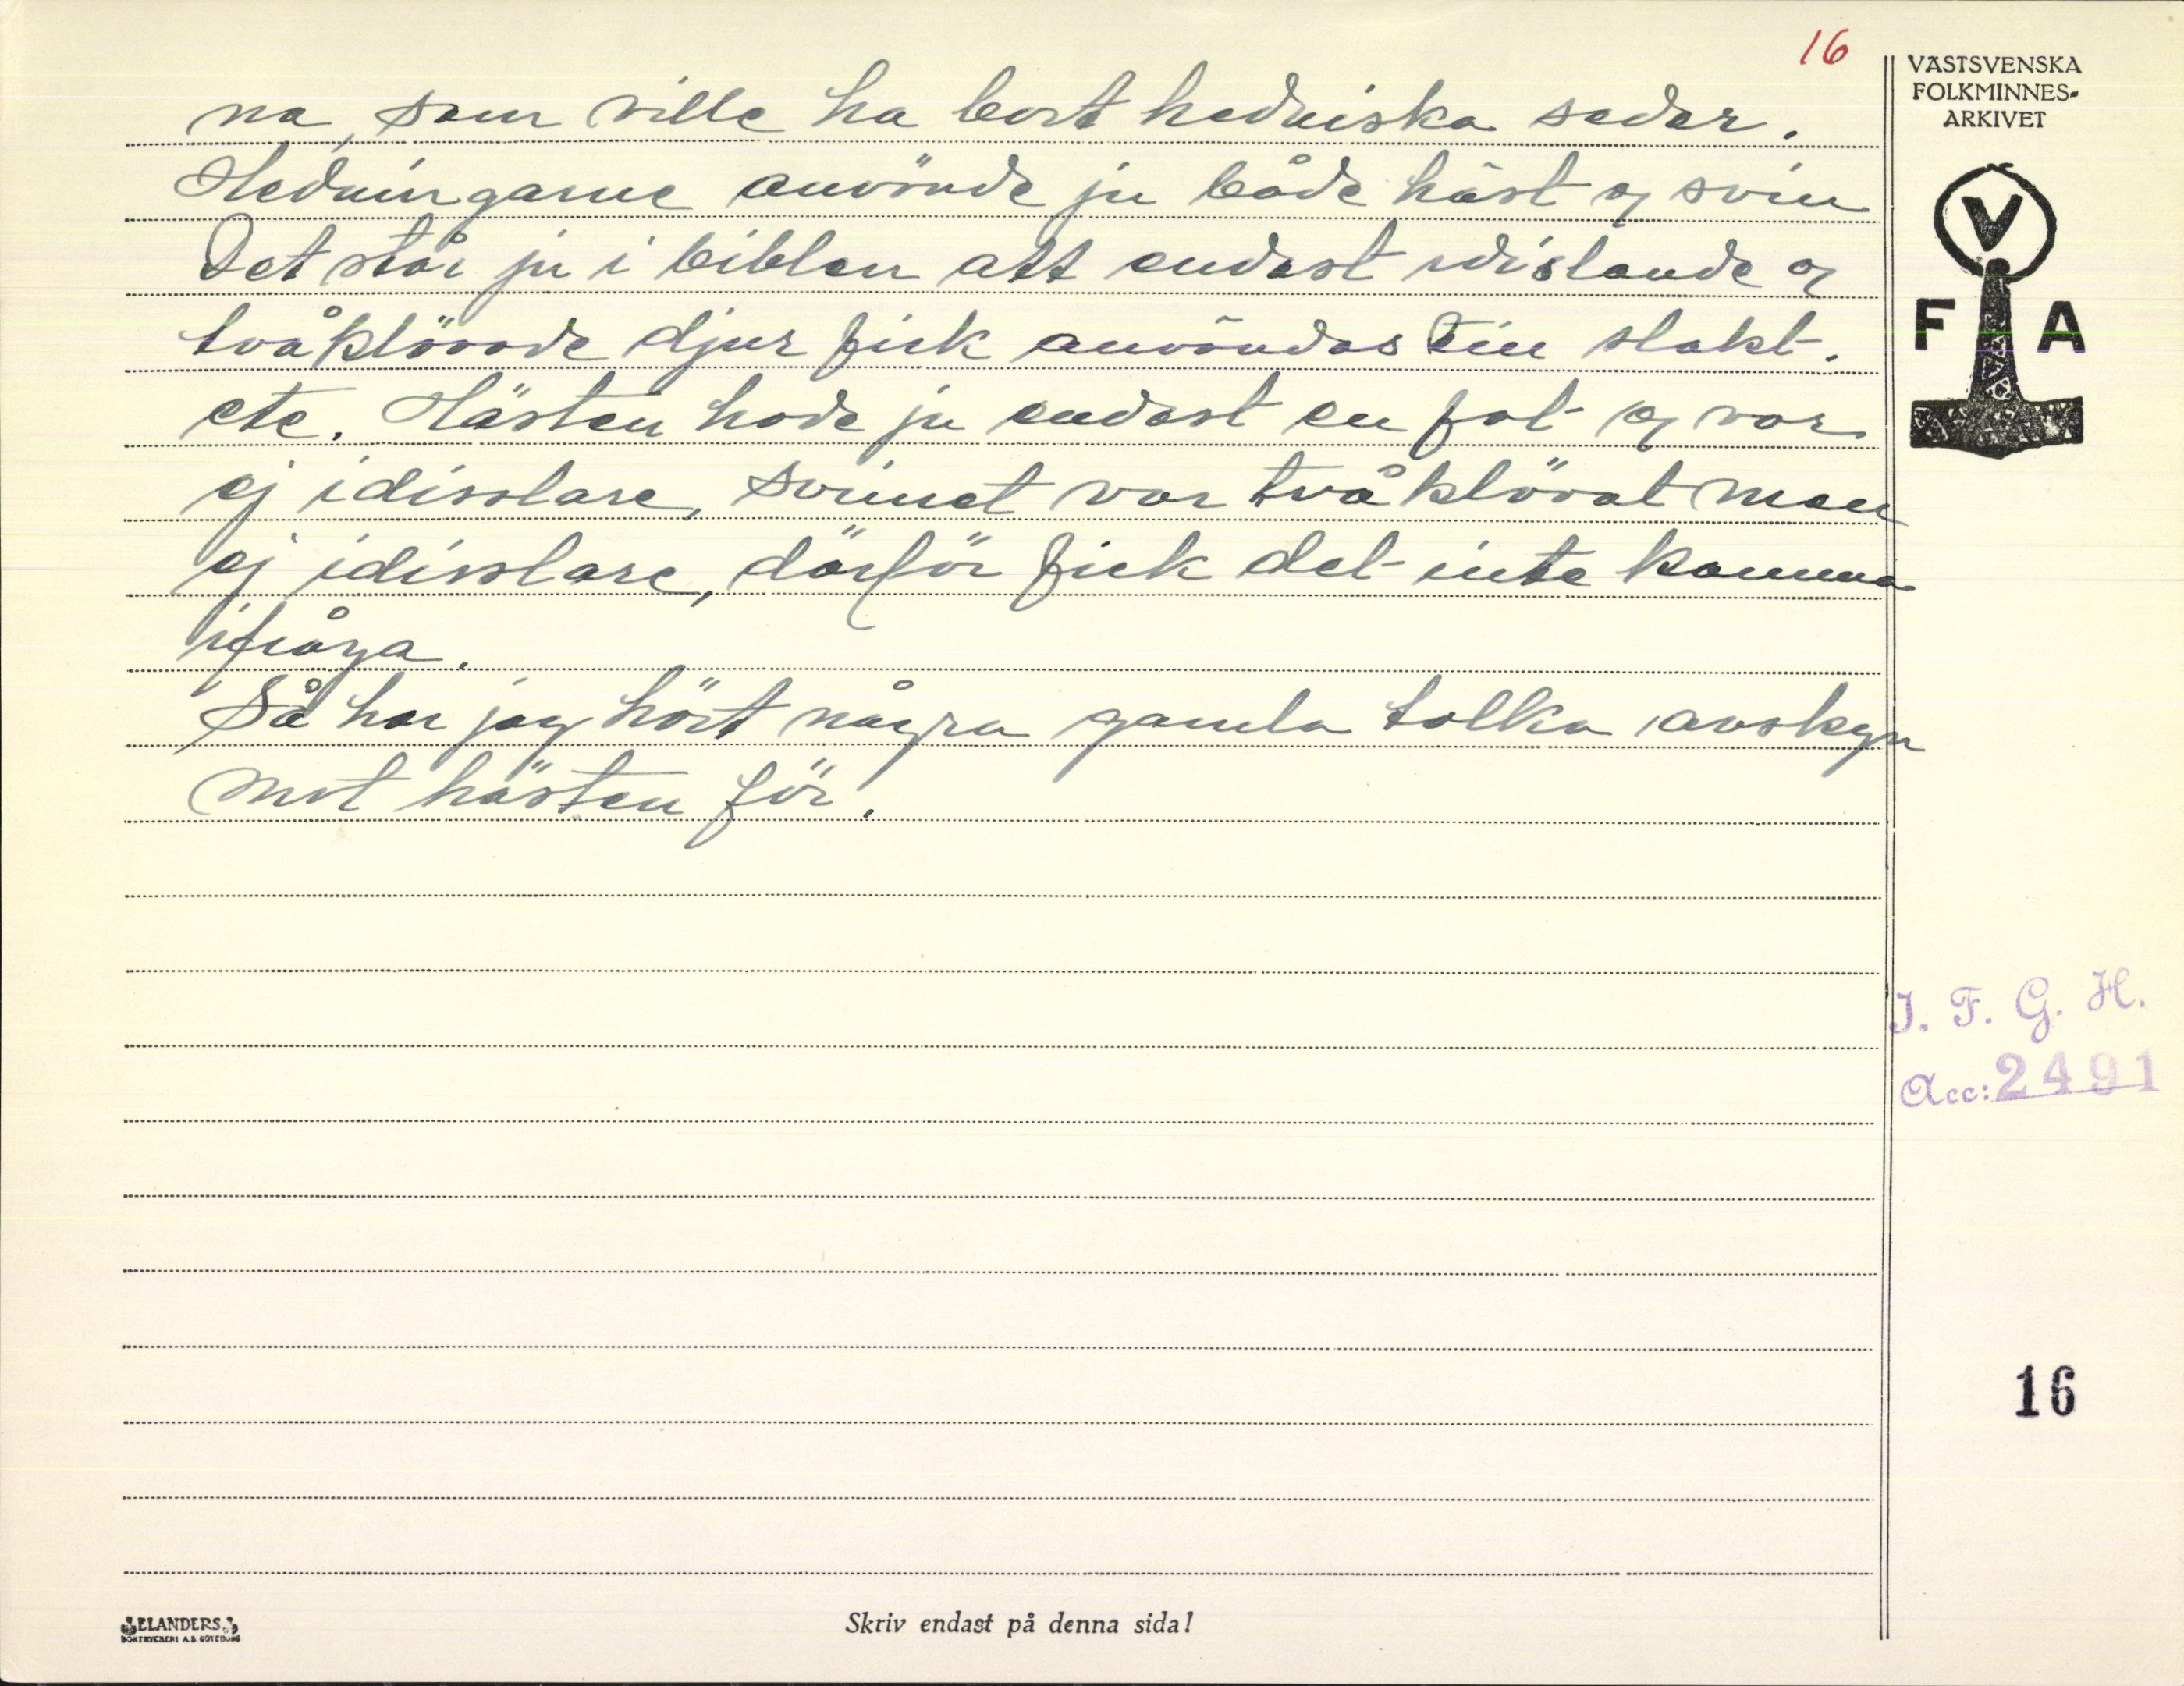 16
na, som ville ha bort hedniska seder.
Hedningarne använde ju både häst og svin
Det står ju i biblen att endast idislande og
tvåklövade djur fick användas till slakt-
ete. Hästen hade ju endast en fot og var
ej idisslare, svinet var tvåklövat men
ej idisslare, därför fick det inte komma
ifråga.
Så har jag hört några gamla tolka avskyn
mot hästen för.
VÄSTSVENSKA
FOLKMINNES-
ARKIVET
V
F A
I. F. G. H.
Acc: 2491
16
ELANDERS
BOKTRYCKERI A.B. GÖTEBORG
Skriv endast på denna sida!